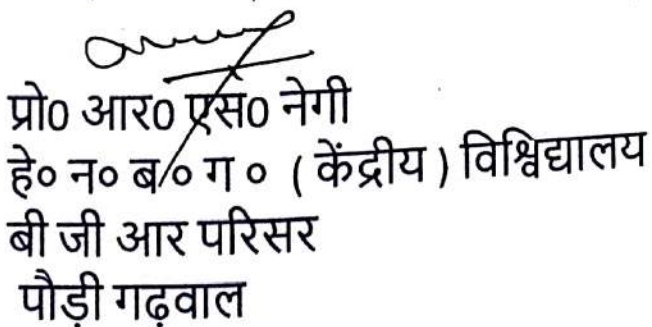 प्रो0 आर0 एस0 नेगी
हे० न० ब० ग ० ( केंद्रीय ) विश्विद्यालय
बी जी आर परिसर
पौड़ी गढ़वाल